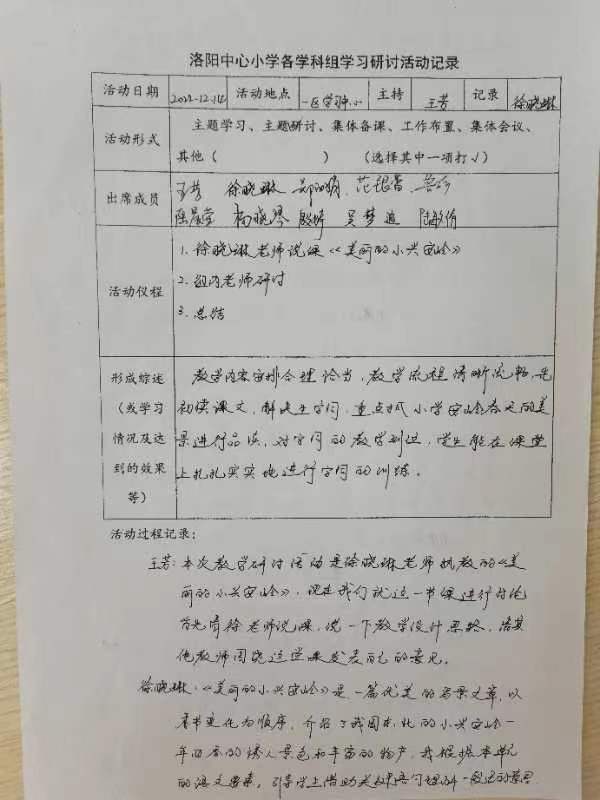 洛阳中心小学各学科组学习研讨活动记录
活动日期 2022.12.14 活动地点 一区学科办公 主持 王芳 记录 徐晓琳
活动形式 主题学习、主题研讨、集体备课、工作布置、集体会议、
其他（ ） （选择其中一项打√）
出席成员 王芳 徐晓琳 范银香
杨晓琴 殷娇 吴梦
活动仪程 1. 徐晓琳老师说课《美丽的小兴安岭》
2. 组内老师研讨
3. 总结
形成综述 教学内容安排合理恰当，教学流程清晰流畅，先
（或学习 初读课文，解决生字词，重点抓小兴安岭春天的美
情况及达 景进行品读，对字词的教学到位，学生能在课堂
到的效果 上扎扎实实地进行字词的训练。
等）
活动过程记录：
王芳：本次教学研讨活动是徐晓琳老师执教的《美
丽的小兴安岭》，现在我们就这一节课进行讨论
首先有徐老师说课，说一下教学设计思路，请其
他教师围绕这堂课发表自己的意见。
徐晓琳：《美丽的小兴安岭》是一篇优美的写景文章，以
季节变化为顺序，介绍了我国东北的小兴安岭一
年四季的诱人景色和丰富的物产，我根据本单元
的语文要素，引导学生借助关键语句理解一段话的意思